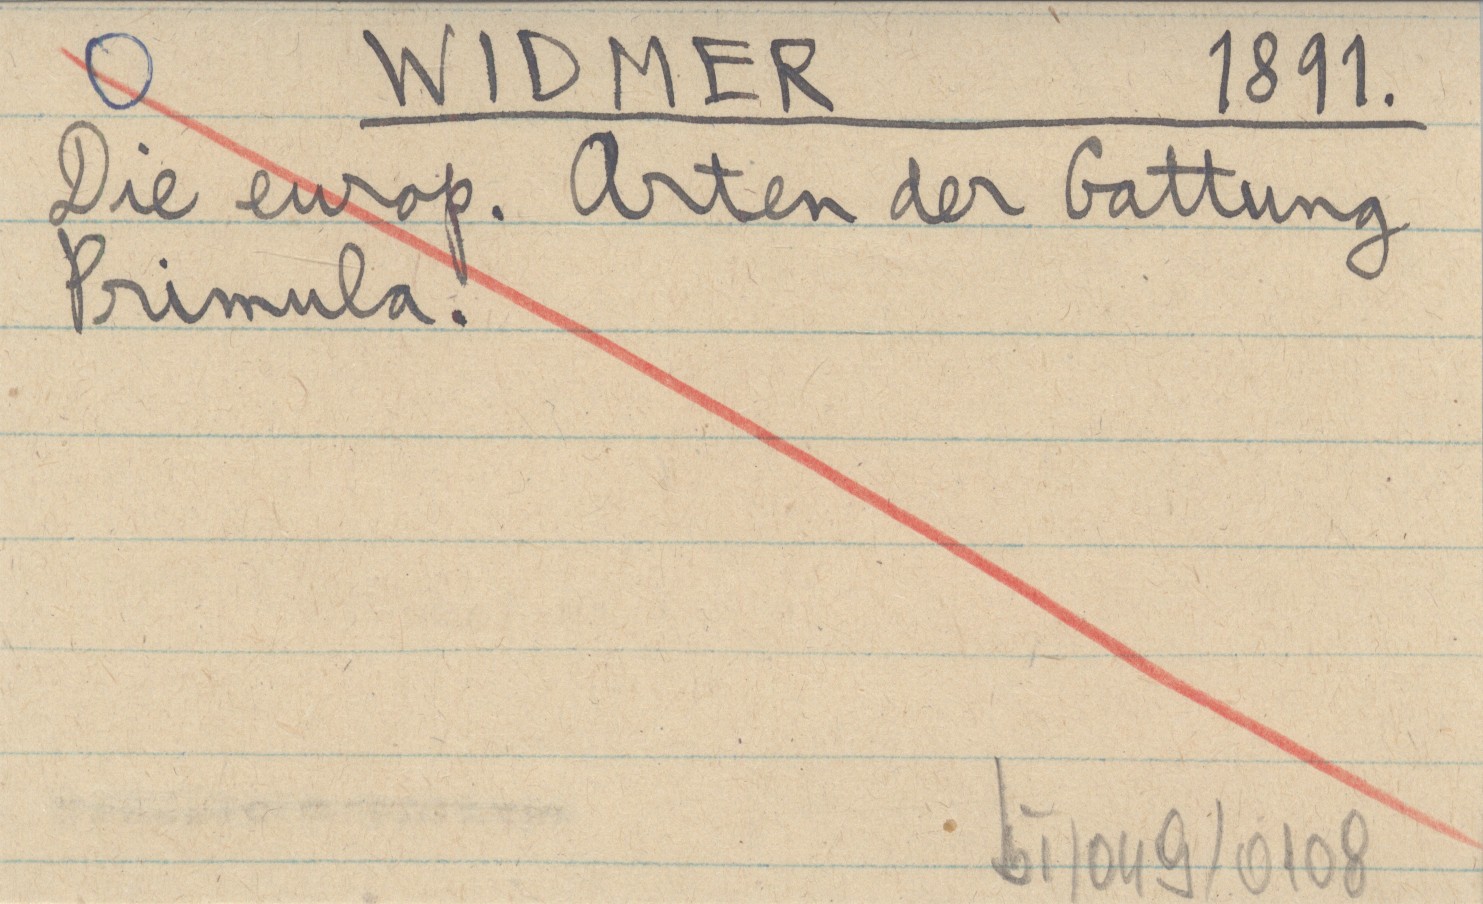 WIDMER 1891.
Die europ. Arten der Gattung
Primula.
bI/049/0108